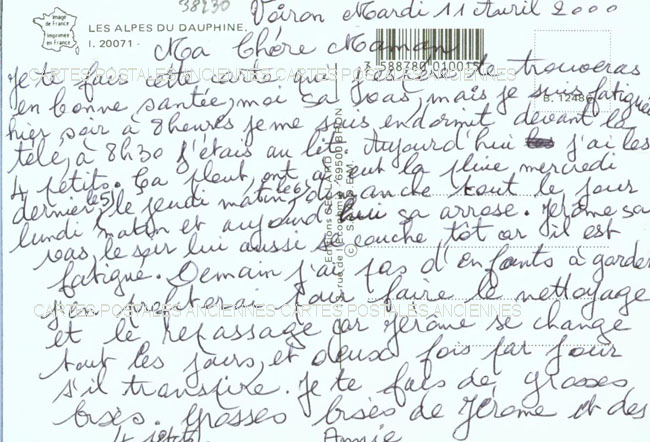 38230
Voiron Mardi 11 Avril 2000
Image de France
Imprimée en France
LES ALPES DU DAUPHINE.
I. 20071 -
Ma Chère Maman
3 588780 010015
B. 12486
Je te fais cette carte qui j'espère te trouveras
CARTES POSTALES ANCIENNES CARTES POSTALES ANCIENNES
en bonne santée, moi sa vas, mais je suis fatiguée
hier soir à 8heures je me suis endormit devant la
télé, à 8h30 j'étais au lit. Aujourd'hui j'ai les
4 petits. Ca pleut, ont a eut la pluie mercredi
dernier le 5, le jeudi matin le 6, dimanche tout le jour
lundi matin et aujourd'hui sa arrose. Jérôme sa
vas, le soir lui aussi se couche tôt car il est
fatigué. Demain j'ai pas d'enfants à garder
j'en profiterai pour faire le nettoyage
CARTES POSTALES ANCIENNES CARTES POSTALES ANCIENNES
et le repassage car Jérôme se change
tout les jours, et deux fois par jour
s'il transpire. Je te fais de grosses
bises. Grosses bises de Jérôme et des
4 petits
Annie